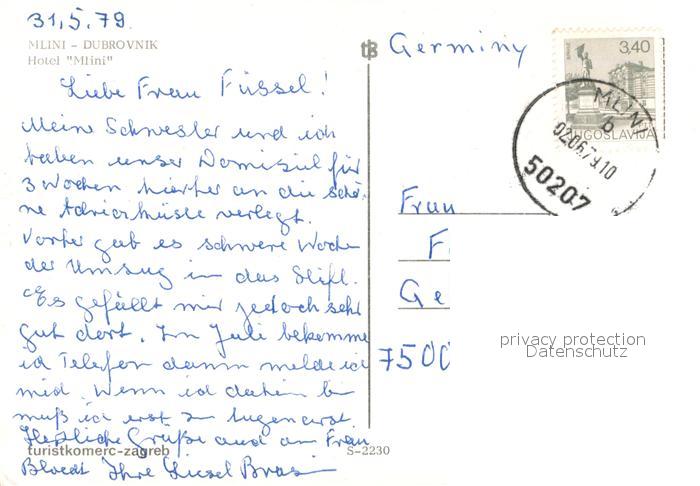 31.5.79.
MLINI - DUBROVNIK
Hotel "Mlini"
Liebe Frau Füssel!
Meine Schwester und ich
haben unser Domizil für
3 Wochen hierher an die schö-
ne Adriaküste verlegt.
Vorher gab es schwere Wochen
der Umzug in das Stift.
Es gefällt mir jedoch sehr
gut dort. Im Juli bekomme
ich Telefon dann melde ich
mich. Wenn ich daheim bin
muß ich erst zum Augenarzt.
Herzliche Grüße auch an Frau
Ihre Liesel
turistkomerc-zagreb
S-2230
tz
Germiny
3,40
JUGOSLAVIJA
MLINI
b
02.06.79.10
50207
Frau
F
Ge
7500
privacy protection
Datenschutz